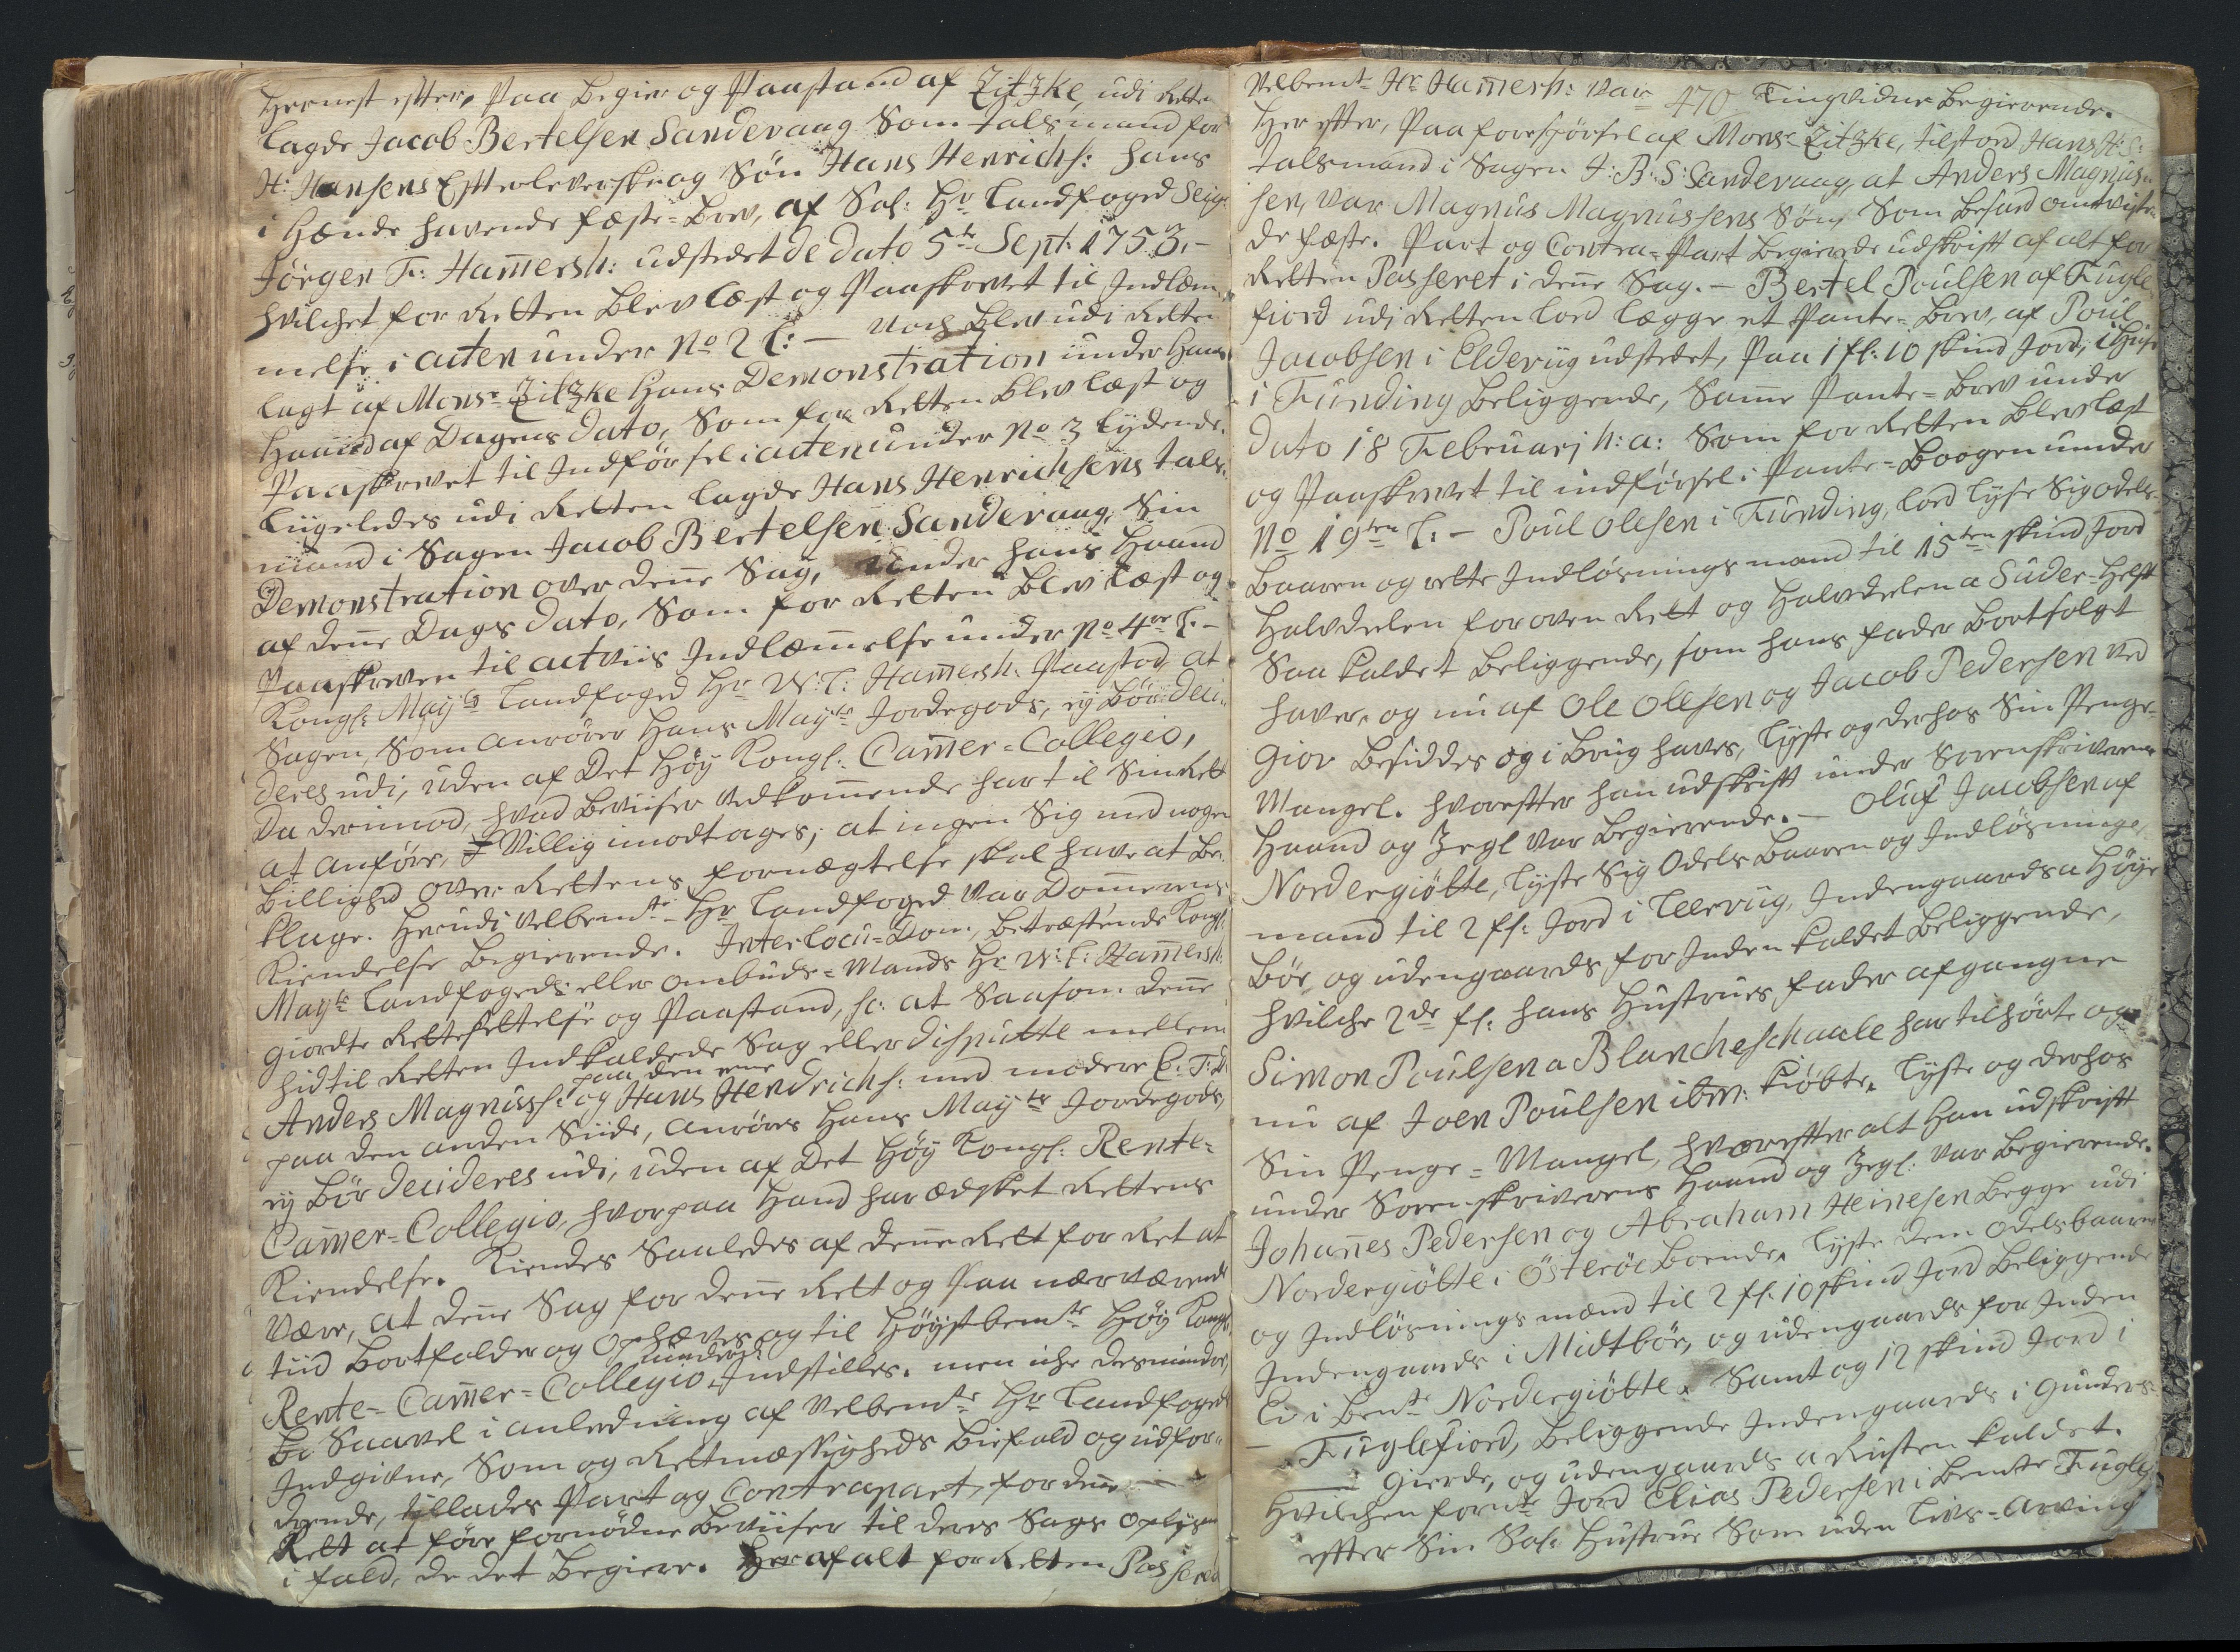 Hernest efter, Paa Begier og Paastand af Zitzke, udi Retten
lagde Jacob Bertelsen Sandevaag Som talsmand for
H: Hansens Efterleverske og Søn Hans Henrichs: hans
i Hænde havende fæste-Brev, af Sal: Hr Landfoged Seigr
Jörgen F: Ham̄ersh: udstædet de dato 5te Sept: 1753.-
hvilchet for Retten blev læst og Paaskrevet til Indlem-
melse i acten under No 2 L: - Noch blev udi Retten
lagt af Monsr Zitzke hans Demonstration under hans
Haand af Dagens dato, Som for Retten blev læst og
Paaskrevet til Indførsel i acten under No 3 lydende.
Liigeledes udi Retten lagde Hans Henrichsens tals-
mand i Sagen Jacob Bertelsen Sandevaag, Sin
Demonstration over den̄e Sag, under hans Haand
af den̄e Dags dato, Som for Retten blev læst og
Paaskreven til actviis Indlem̄else under No 4re L. -
Kongl: Mayts Landfoged Hr W: L: Ham̄ersh: Paastod, at
Sagen, Som anrörer Hans Mayts Jordegods, ey bör deci-
deres udi, uden af Det Høy Kongl: Cam̄er-Collegio,
Da derimod, hvad beviiser vedkom̄ende har til Sin Rett
at anføre, Villig imodtages, at ingen Sig med nogen
billighed over Rettens fornægtelse skal have at be-
klage. Herudi velbemte Hr Landfoged var Dom̄erens
Kiendelse begierende. Interlocu-Dom, betræffende Kongl:
Mayts Landfogeds eller ombuds-Mands Hr W: L: Ham̄ersh:
giordte Rettesettelse og Paastand, sc: at Saasom den̄e
hidtil Retten Indkaldede Sag eller dispütte mellem
paa den ene
Anders Magnuss: og Hans Hendrichs: med modere
paa den anden Siide, anröres Hans Mayts Jordegods,
ey bør decideres udi, uden af Det Høy Kongl: Rente-
Cam̄er-Collegio, hvorpaa Hand har ædsket Rettens
Kiendelse. Kiendes Saaledes af den̄e Rett for Ret at
være, at den̄e Sag for den̄e Rett og Paa nærværende
tiid bortfalder og Ophæves og til Høystbemte Høy Kongl:
Rente-Cam̄er-Collegio Indstilles. men iche desmindre,
Saavel i anledning af Velbemte Hr Landfogeds
Indgivne, Som og Retmæssigheds Biefald og udfor-
drende, tillades Part og Contrapart, for den̄e
Rett at føre fornødne Beviiser til deres Sags oplysn
i fald, de det begierer. Her af alt for Retten Passered
Velbemte Hr Ham̄ersh: var 470 Tingsvidne begierende.
Her efter, Paa forespörsel af Monsr Zitzke, tilstod Hans H: S:
talsmand i Sagen J: B: S: Sandevaag, at Anders Magnus-
sen, var Magnus Magnussens Søn, Som besad omtviste-
de fæste. Part og Contra-Part begierede udskrift af alt for
Retten Passeret i den̄e Sag. - Bertel Poulsen af Fugle-
fiord udi Retten lod lægge et Pante-Brev, af Poul
Jacobsen i Elderüig udstædet, Paa 1 fl: 10 skind Jord, i
i Fünding beliggende, Sam̄e Pante-Brev under
dato 18 Februarj h: a: Som for Retten blev læst
og Paaskrevet til indførsel i Pante-Boogen under
No 19ten L: - Poul Olesen i Fünding, lod lyse Sig odels-
baaren og rette Indløsningsmand til 15ten skind Jord
Halvdeelen for oven Rett og Halvdelen a Süder-Helft
Saa kaldet beliggende, som hans fader bortsolgt
haver, og nu af Ole Olesen og Jacob Pedersen ved
Giov besiddes og i brug haves, lyste og derhos Sin Penge-
Mangel. hvorefter han udskrift under Sorenskriverens
Haand og Zegl var begierende. - Oluf Jacobsen af
Nordergiøtte, lyste Sig Odels baaren og Indløsnings-
mand til 2 fl: Jord i Leervüg, Indengaards a Høye
Bör, og udengaards for Inden kaldet beliggende,
hvilche 2de fl: hans Hustrues fader afgangne
Simon Poulsen a Blancheschaale har tilhørt og
nu af Joen Poulsen ibm: kiøbte, lyste og derhos
Sin Penge-Mangel, hvorefter alt Han udskrift
under Sorenskriverens Haand og Zegl: var begierende.
Johan̄es Pedersen og Abraham Heinesen begge udi
Nordergiøtte i Österöe boende, lyste dem odelsbaarne
og Indløsnings mænd til 2 fl: 10 skind Jord beliggende
Indengaards i Midtbör, og udengaards for Inden
Ei i bente Nordergiøtte, Samt og 12 skind Jord i
Fuglefiord, beliggende Indengaards i Gunders-
Gierde, og udengaards a Rüsten kaldet.
Hvilchen forente Jord Elias Pedersen i bemte Fuglef
efter Sin Sal: Hustrue Som uden Livs-Arving